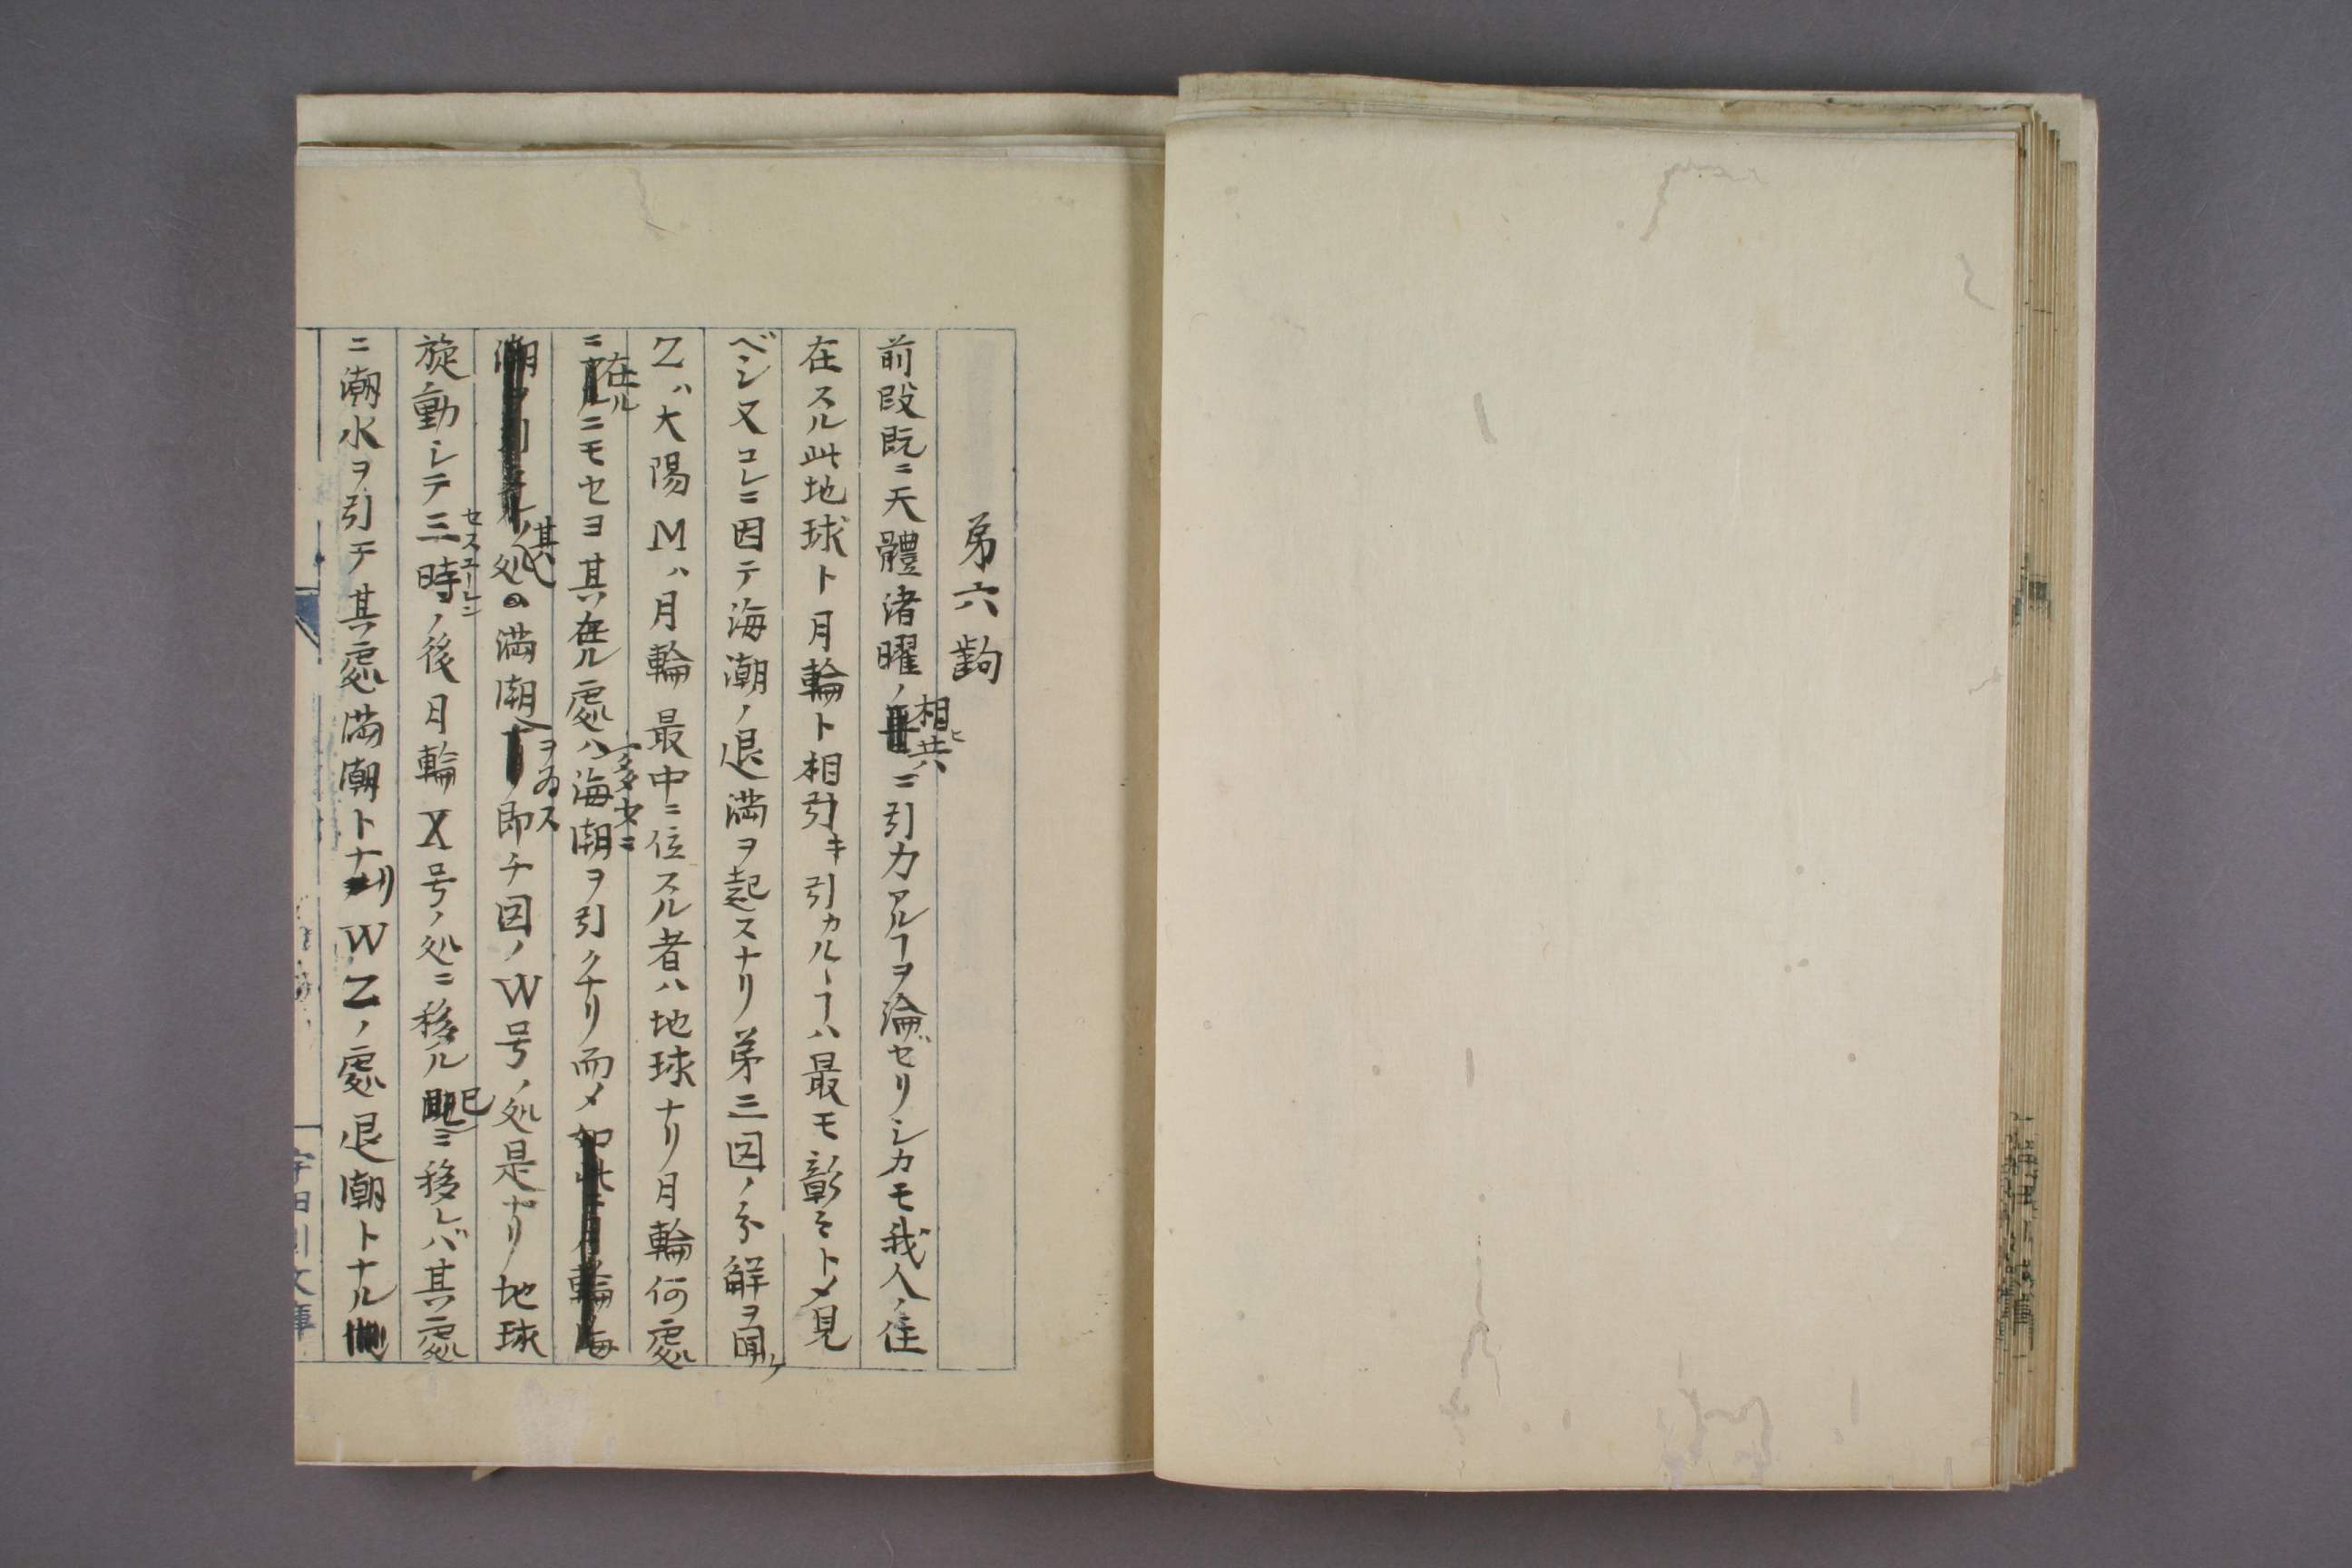 第六齣
前段既ニ天體渚曜ノ相共ヒニ引力アルヿヲ淪ゼリシカモ我人ノ住
在スル此地球ト月輪ト相引キ引カルヽヿハ最モ彰ミトメ見
ベシ又コレニ因テ海潮ノ退満ヲ起スナリ第三図ノ分解ヲ聞ケ
Zハ大陽Mハ月輪最中ニ位スル者ハ地球ナリ月輪何處
ニ在ルニモセヨ其在ル處ハ多少ニ海潮ヲ引クナリ而メ
其処の満潮ヲ為ス即チ図ノW号ノ処是ナリ地球
旋動シテ三時ノ後月輪X号ノ処ニ移ル已ニ移レバ其處
ニ潮水ヲ引テ其處満潮トナリWZノ處退潮トナル
宇田川文庫